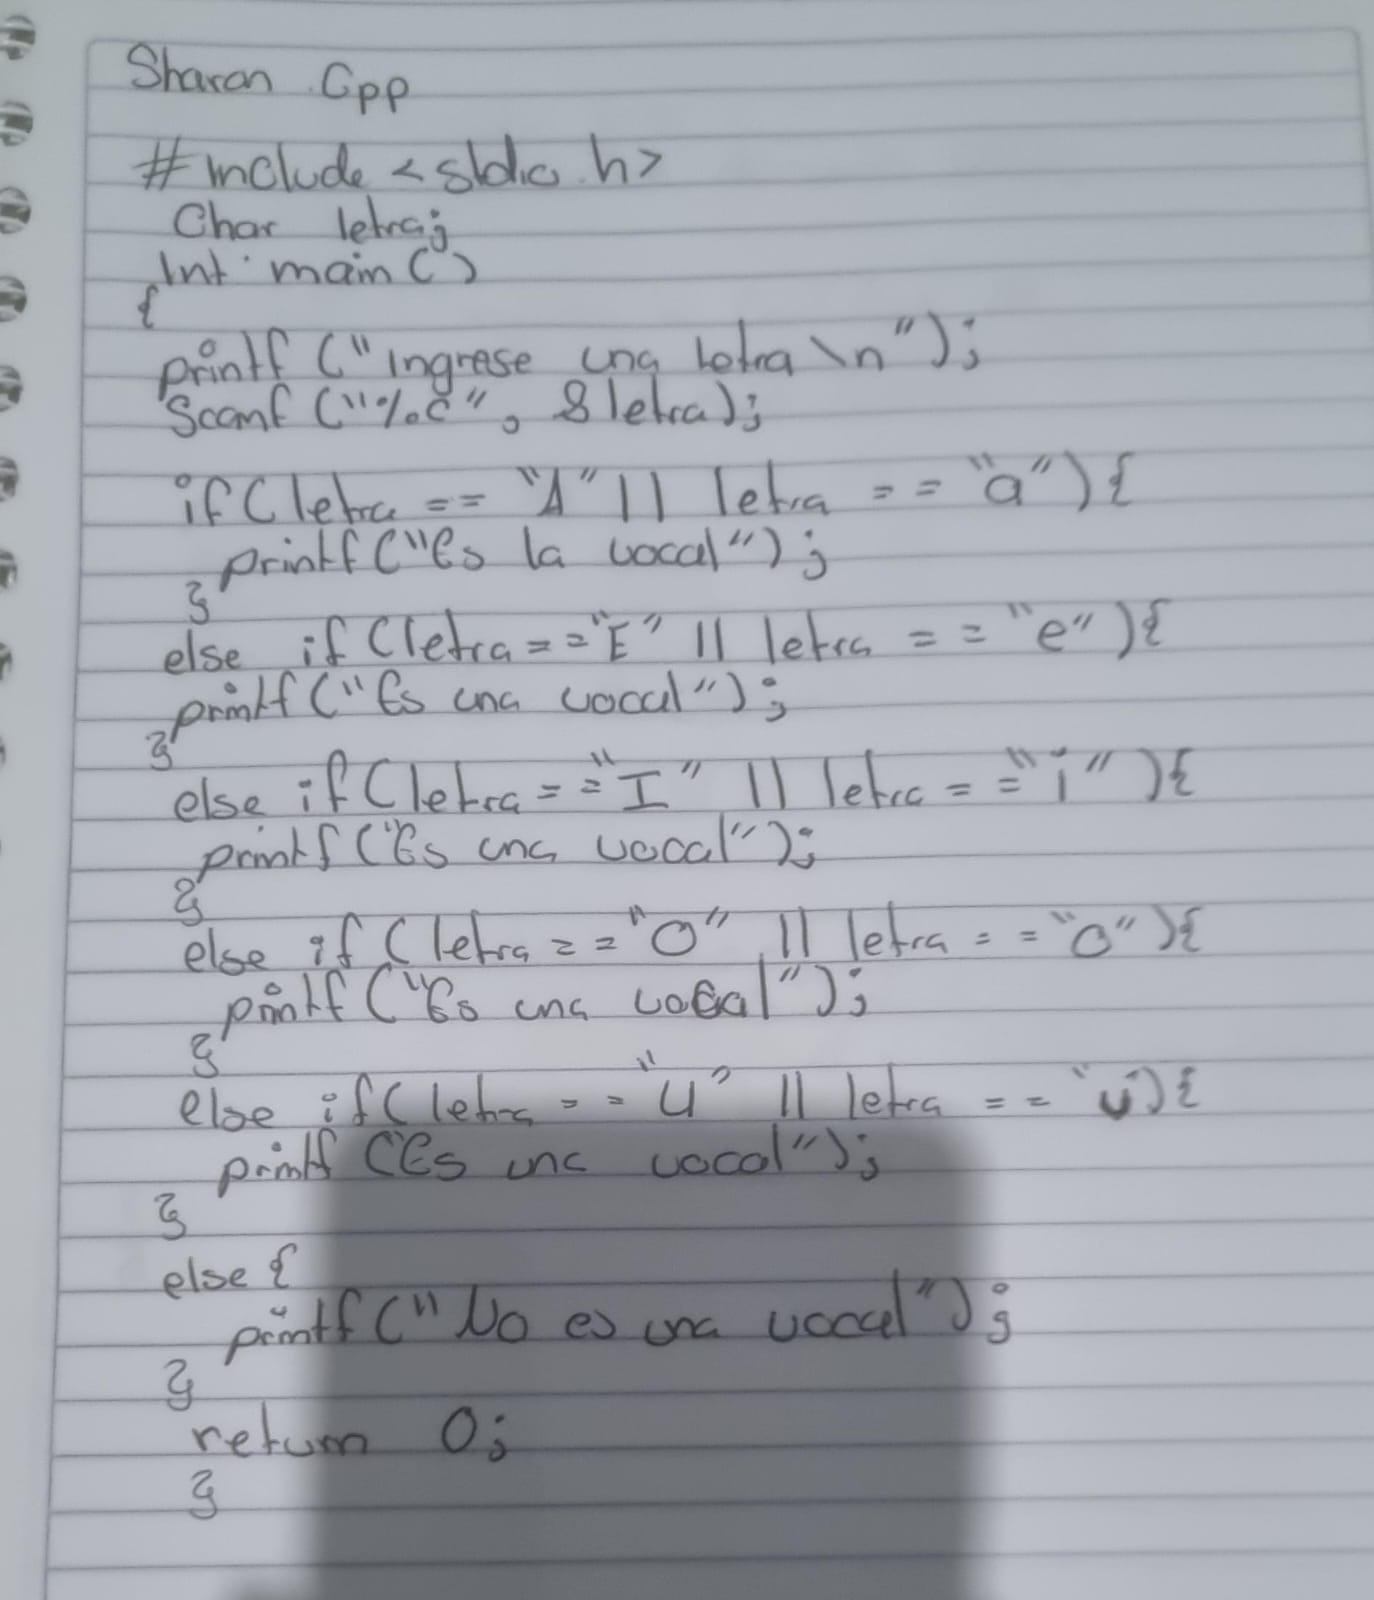 Sharon Cpp
#include <stdio.h>
Char letra;
Int main ()
{
printf ("Ingrese una letra \n");
Scanf ("%c", &letra);
if (letra == "A" || letra == "a"){
printf ("Es la vocal");
}
else if (letra == "E" || letra == "e"){
printf ("Es una vocal");
}
else if (letra == "I" || letra == "i"){
printf ("Es una vocal");
}
else if (letra == "O" || letra == "o"){
printf ("Es una vocal");
}
else if (letra == "U" || letra == "u"){
printf ("Es una vocal");
}
else {
printf ("No es una vocal");
}
return 0;
}